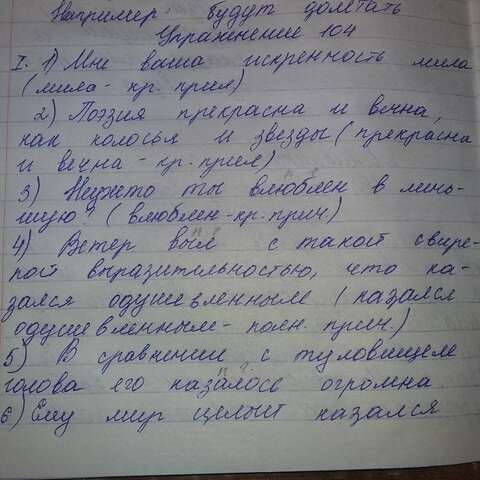 Например: будут долетать
Упражнение 104
I. 1) Мни ваша искренность мила
(мила - кр. прил)
2) Поэзия прекрасна и вечна,
как колосья и звезды (прекрасна
и вечна - кр. прил)
3) Неужто ты влюблен в мень-
шую? (влюблен - кр. прич)
4) Ветер выл с такой свире-
пой выразительностью, что ка-
зался одушевленным (казался
одушевленным - полн. прич.)
5) В сравнении с туловищем
голова его казалось огромна.
6) Ему мир целый казался